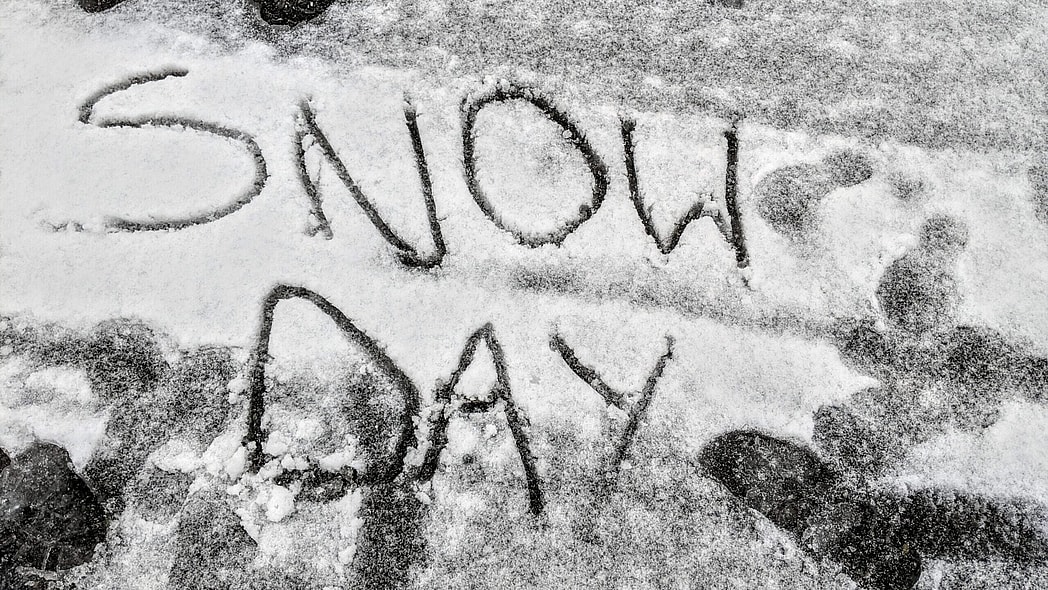 SNOW
DAY